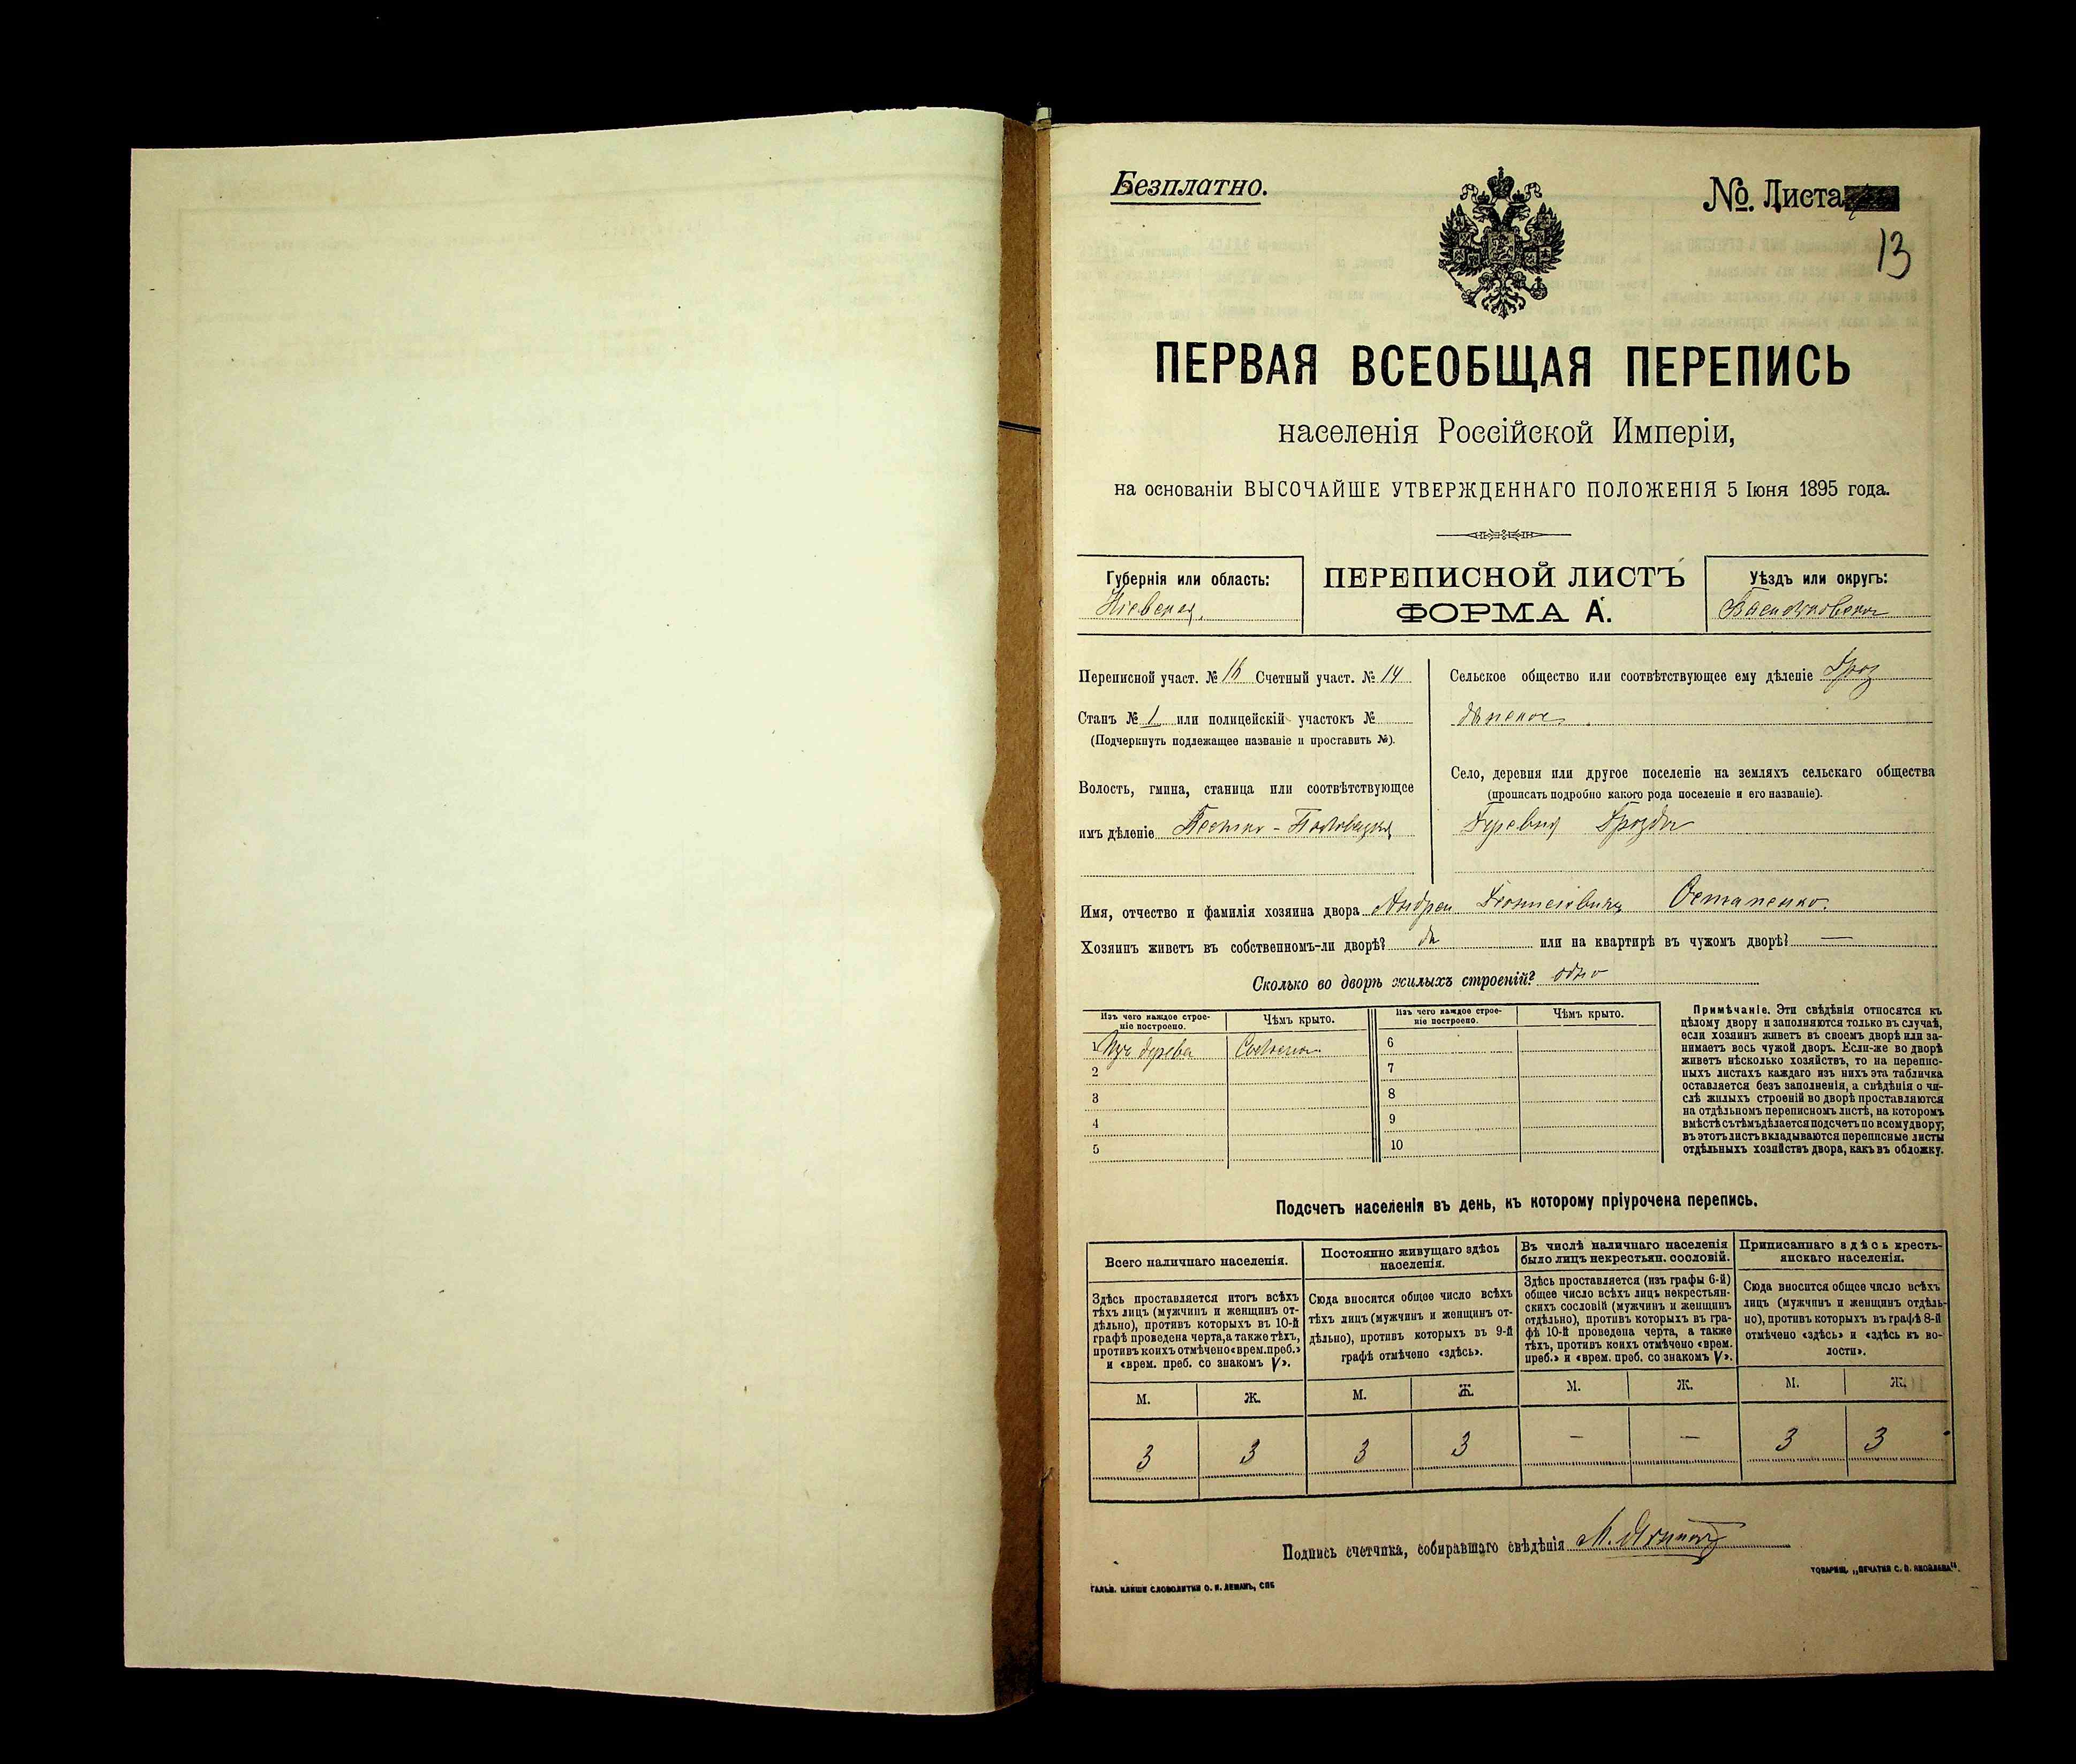 Безплатно.
№. Листа
13
ПЕРВАЯ ВСЕОБЩАЯ ПЕРЕПИСЬ
населенія Россійской Имперіи,
на основаніи ВЫСОЧАЙШЕ УТВЕРЖДЕННАГО ПОЛОЖЕНІЯ 5 Іюня 1895 года.
Губернія или область:
Кіевская
ПЕРЕПИСНОЙ ЛИСТЪ
ФОРМА А.
Уѣздъ или округъ:
Васильковскій
Переписной участ. № 16 Счетный участ. № 14
Станъ № 1 или полицейскій участокъ №
(Подчеркнуть подлежащее названіе и проставить №).
Волость, гмина, станица или соотвѣтствующее
имъ дѣленіе
Сельское общество или соотвѣтствующее ему дѣленіе Гроз
дянское
Село, деревня или другое поселеніе на земляхъ сельскаго общества
(прописать подробно какого рода поселеніе и его названіе).
Деревня Грозды
Имя, отчество и фамилія хозяина двора Андрей Остапенко.
Хозяинъ живетъ въ собственномъ-ли дворѣ? да или на квартирѣ въ чужомъ дворѣ? —
Сколько во дворѣ жилыхъ строеній? одно
Изъ чего каждое строе-
ніе построено.
Чѣмъ крыто.
Изъ чего каждое строе-
ніе построено.
Чѣмъ крыто.
1 Изъ дерева Соломою
2
3
4
5
6
7
8
9
10
Примѣчаніе. Эти свѣдѣнія относятся къ
цѣлому двору и заполняются только въ случаѣ,
если хозяинъ живетъ въ своемъ дворѣ или за-
нимаетъ весь чужой дворъ. Если-же во дворѣ
живетъ нѣсколько хозяйствъ, то на перепис-
ныхъ листахъ каждаго изъ нихъ эта табличка
оставляется безъ заполненія, а свѣдѣнія о чи-
слѣ жилыхъ строеній во дворѣ проставляются
на отдѣльномъ переписномъ листѣ, на которомъ
вмѣстѣ съ тѣмъ дѣлается подсчетъ по всему двору;
въ этотъ листъ вкладываются переписные листы
отдѣльныхъ хозяйствъ двора, какъ въ обложку.
Подсчетъ населенія въ день, къ которому пріурочена перепись.
Всего наличнаго населенія.
Здѣсь проставляется итогъ всѣхъ
тѣхъ лицъ (мужчинъ и женщинъ от-
дѣльно), противъ которыхъ въ 10-й
графѣ проведена черта, а также тѣхъ,
противъ коихъ отмѣчено «врем. преб.»
и «врем. преб. со знакомъ V».
М. Ж.
3 3
Постоянно живущаго здѣсь
населенія.
Сюда вносится общее число всѣхъ
тѣхъ лицъ (мужчинъ и женщинъ от-
дѣльно), противъ которыхъ въ 9-й
графѣ отмѣчено «здѣсь».
М. Ж.
3 3
Въ числѣ наличнаго населенія
было лицъ некрестьян. сословій.
Здѣсь проставляется (изъ графы 6-й)
общее число всѣхъ лицъ некрестьян-
скихъ сословій (мужчинъ и женщинъ
отдѣльно), противъ которыхъ въ гра-
фѣ 10-й проведена черта, а также
тѣхъ, противъ коихъ отмѣчено «врем.
преб.» и «врем. преб. со знакомъ V».
М. Ж.
— —
Приписаннаго здѣсь кресть-
янскаго населенія.
Сюда вносится общее число всѣхъ
лицъ (мужчинъ и женщинъ отдѣль-
но), противъ которыхъ въ графѣ 8-й
отмѣчено «здѣсь» и «здѣсь къ во-
лости».
М. Ж.
3 3
Подпись счетчика, собиравшаго свѣдѣнія
ГАЛЬВ. КЛИШЕ СЛОВОЛИТНИ О. И. ЛЕМАНЪ, СПБ
ТОВАРИЩ. „ПЕЧАТНЯ С. П. ЯКОВЛЕВА“.